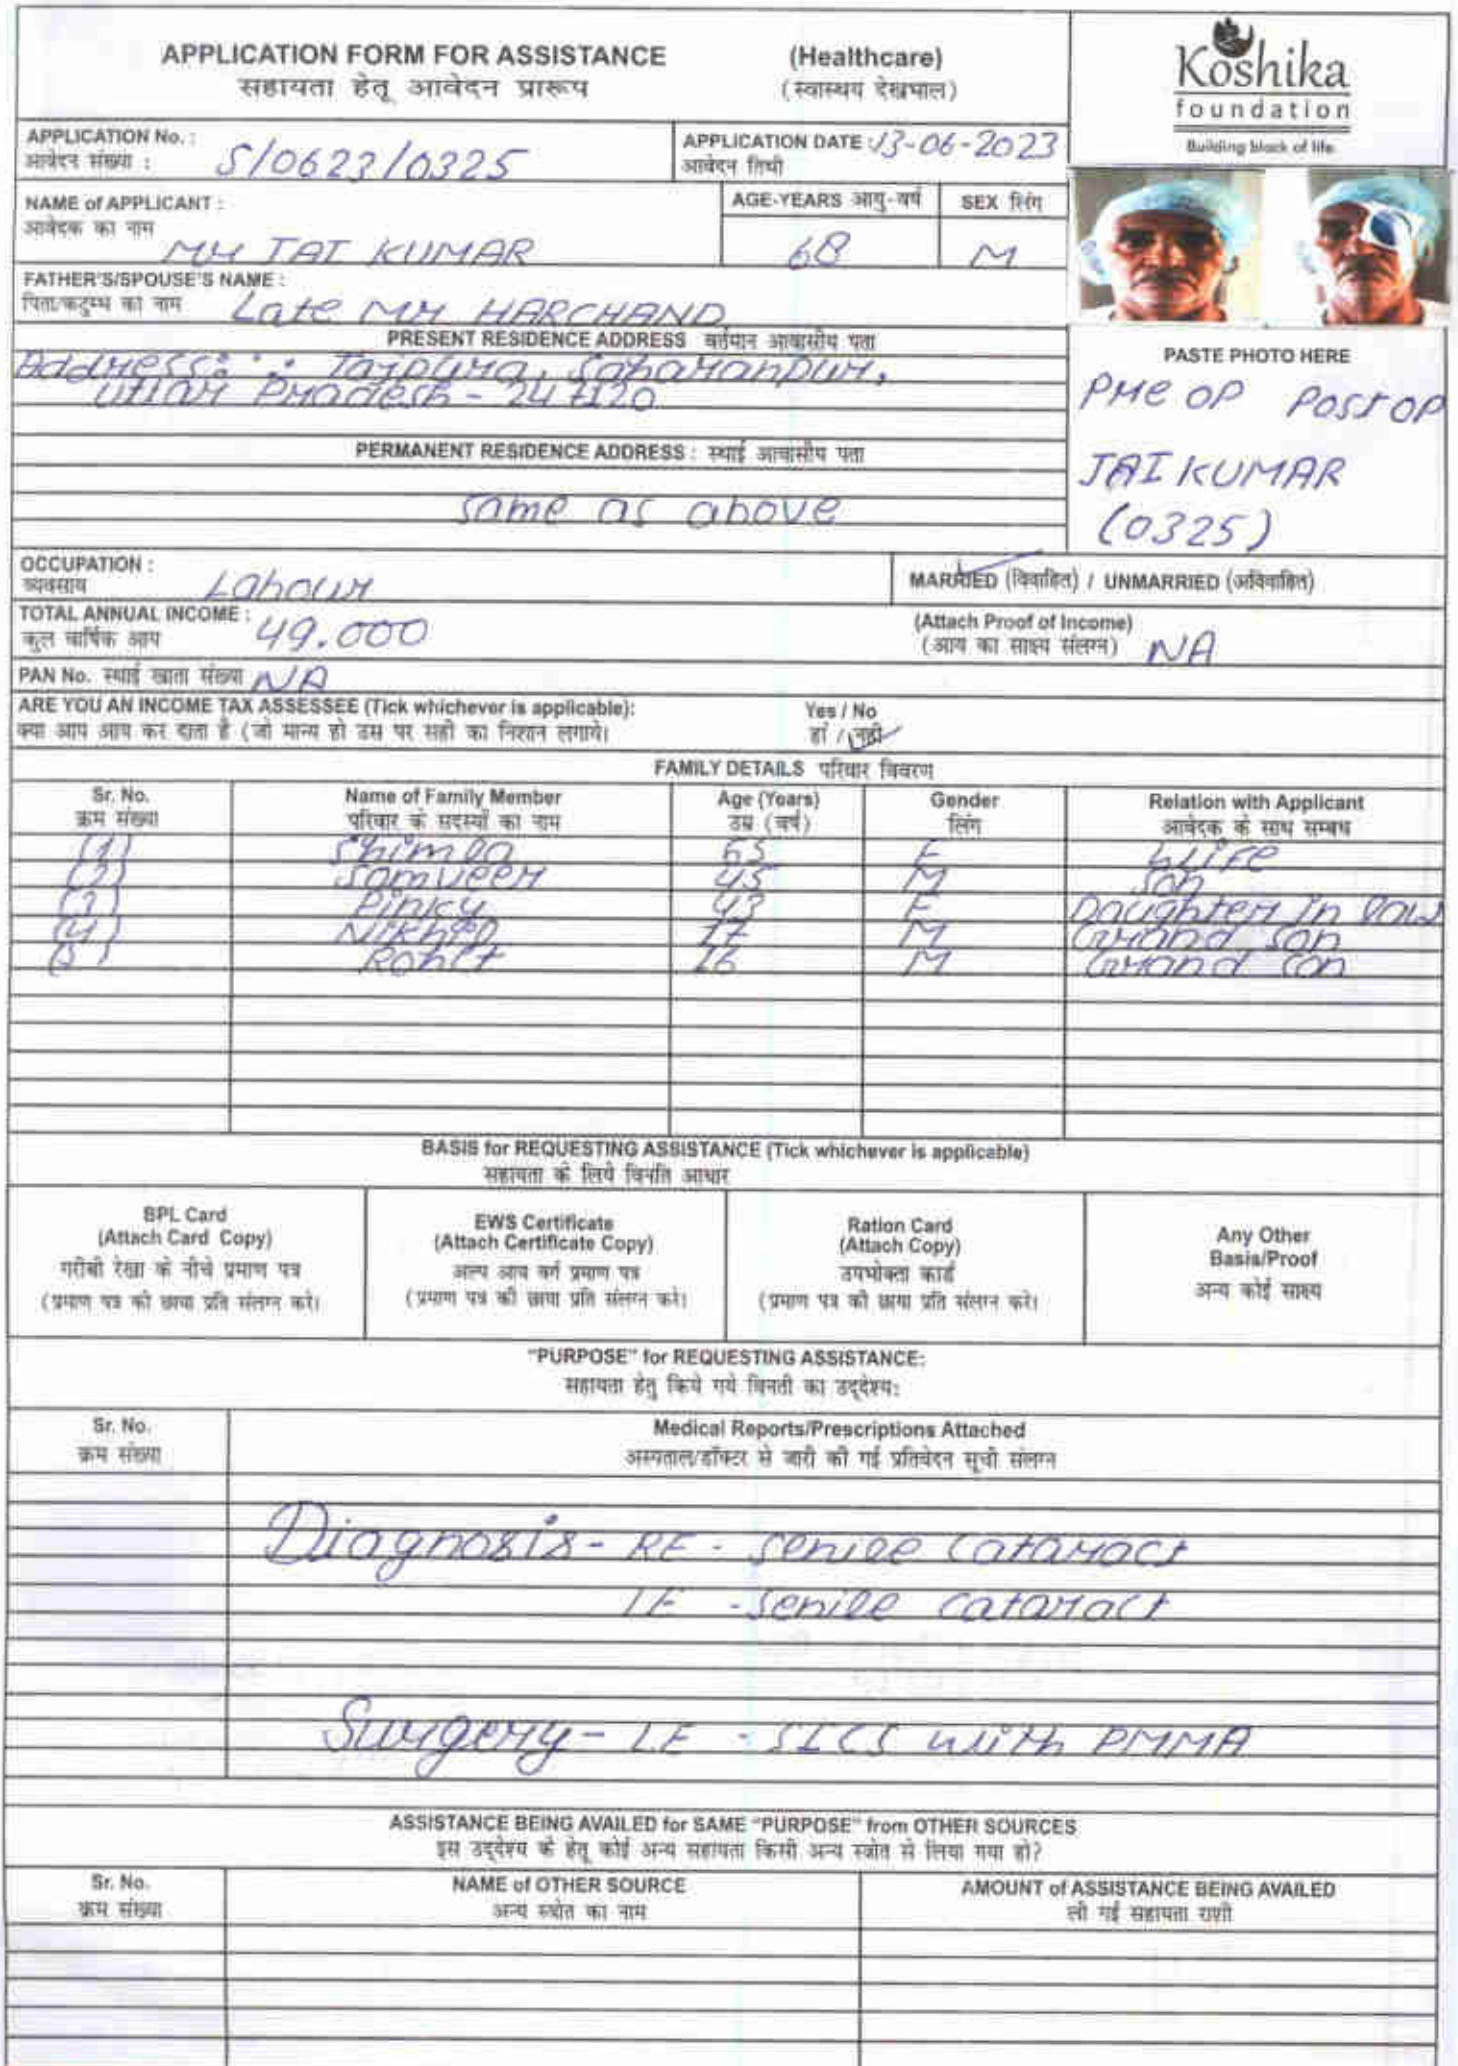 APPLICATION FORM FOR ASSISTANCE (Healthcare)
सहायता हेतू आवेदन प्रारूप (स्वास्थय देखभाल)
Koshika
foundation
Building block of life
APPLICATION No. : S/0623/0325
आवेदन संख्या :
APPLICATION DATE : 13-06-2023
आवेदन तिथी
NAME of APPLICANT :
आवेदक का नाम
Mr JAI KUMAR
AGE-YEARS आयु-वर्ष
68
SEX लिंग
M
FATHER'S/SPOUSE'S NAME :
पिता/कटुम्ब का नाम Late Mr HARCHAND
PRESENT RESIDENCE ADDRESS वर्तमान आवासीय पता
Address : Tajpura, Saharanpur,
Uttar Pradesh - 247120
PERMANENT RESIDENCE ADDRESS : स्थाई आवासीय पता
same as above
PASTE PHOTO HERE
Pre OP Post OP
JAI KUMAR
(0325)
OCCUPATION :
व्यवसाय Labour
MARRIED (विवाहित) / UNMARRIED (अविवाहित)
TOTAL ANNUAL INCOME :
कुल वार्षिक आय 49.000
(Attach Proof of Income)
(आय का साक्ष्य संलग्न) NA
PAN No. स्थाई खाता संख्या NA
ARE YOU AN INCOME TAX ASSESSEE (Tick whichever is applicable): Yes / No
क्या आप आय कर दाता है (जो मान्य हो उस पर सही का निशान लगाये। हां / नहीं
FAMILY DETAILS परिवार विवरण
Sr. No. Name of Family Member Age (Years) Gender Relation with Applicant
क्रम संख्या परिवार के सदस्यों का नाम उम्र (वर्ष) लिंग आवेदक के साथ सम्बध
(1) Shimla 65 F Wife
(2) Somveer 45 M Son
(3) Pinky 43 F Daughter in law
(4) Nikhil 17 M Grand son
(5) Rohit 16 M Grand son
BASIS for REQUESTING ASSISTANCE (Tick whichever is applicable)
सहायता के लिये विनति आधार
BPL Card
(Attach Card Copy)
गरीबी रेखा के नीचे प्रमाण पत्र
(प्रमाण पत्र की छाया प्रति संलग्न करे।
EWS Certificate
(Attach Certificate Copy)
अल्प आय वर्ग प्रमाण पत्र
(प्रमाण पत्र की छाया प्रति संलग्न करे।
Ration Card
(Attach Copy)
उपभोक्ता कार्ड
(प्रमाण पत्र की छाया प्रति संलग्न करे।
Any Other
Basis/Proof
अन्य कोई साक्ष्य
"PURPOSE" for REQUESTING ASSISTANCE:
सहायता हेतु किये गये विनती का उद्देश्य:
Sr. No. Medical Reports/Prescriptions Attached
क्रम संख्या अस्पताल/डॉक्टर से जारी की गई प्रतिवेदन सूची संलग्न
Diagnosis - RE - senile cataract
LE - senile cataract
Surgery - LE - SICS with PMMA
ASSISTANCE BEING AVAILED for SAME "PURPOSE" from OTHER SOURCES
इस उद्देश्य के हेतू कोई अन्य सहायता किसी अन्य स्त्रोत से लिया गया हो?
Sr. No. NAME of OTHER SOURCE AMOUNT of ASSISTANCE BEING AVAILED
क्रम संख्या अन्य स्त्रोत का नाम ली गई सहायता राशी